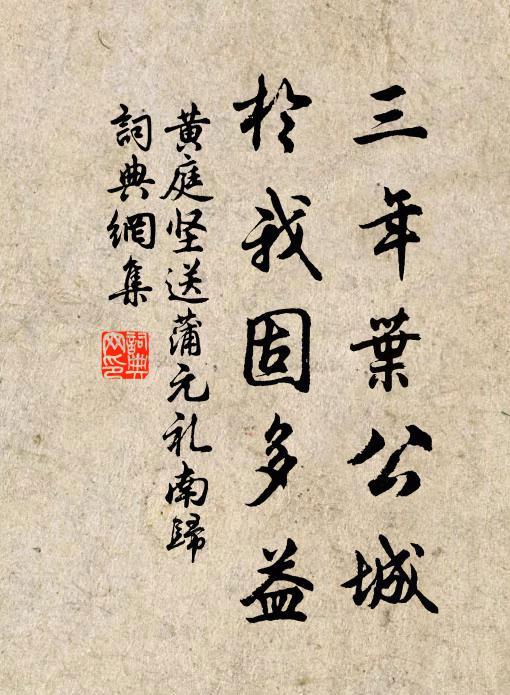 三年葉公城
於我固多益
黄庭坚送蒲元礼南歸
詞典網集
詞典网印